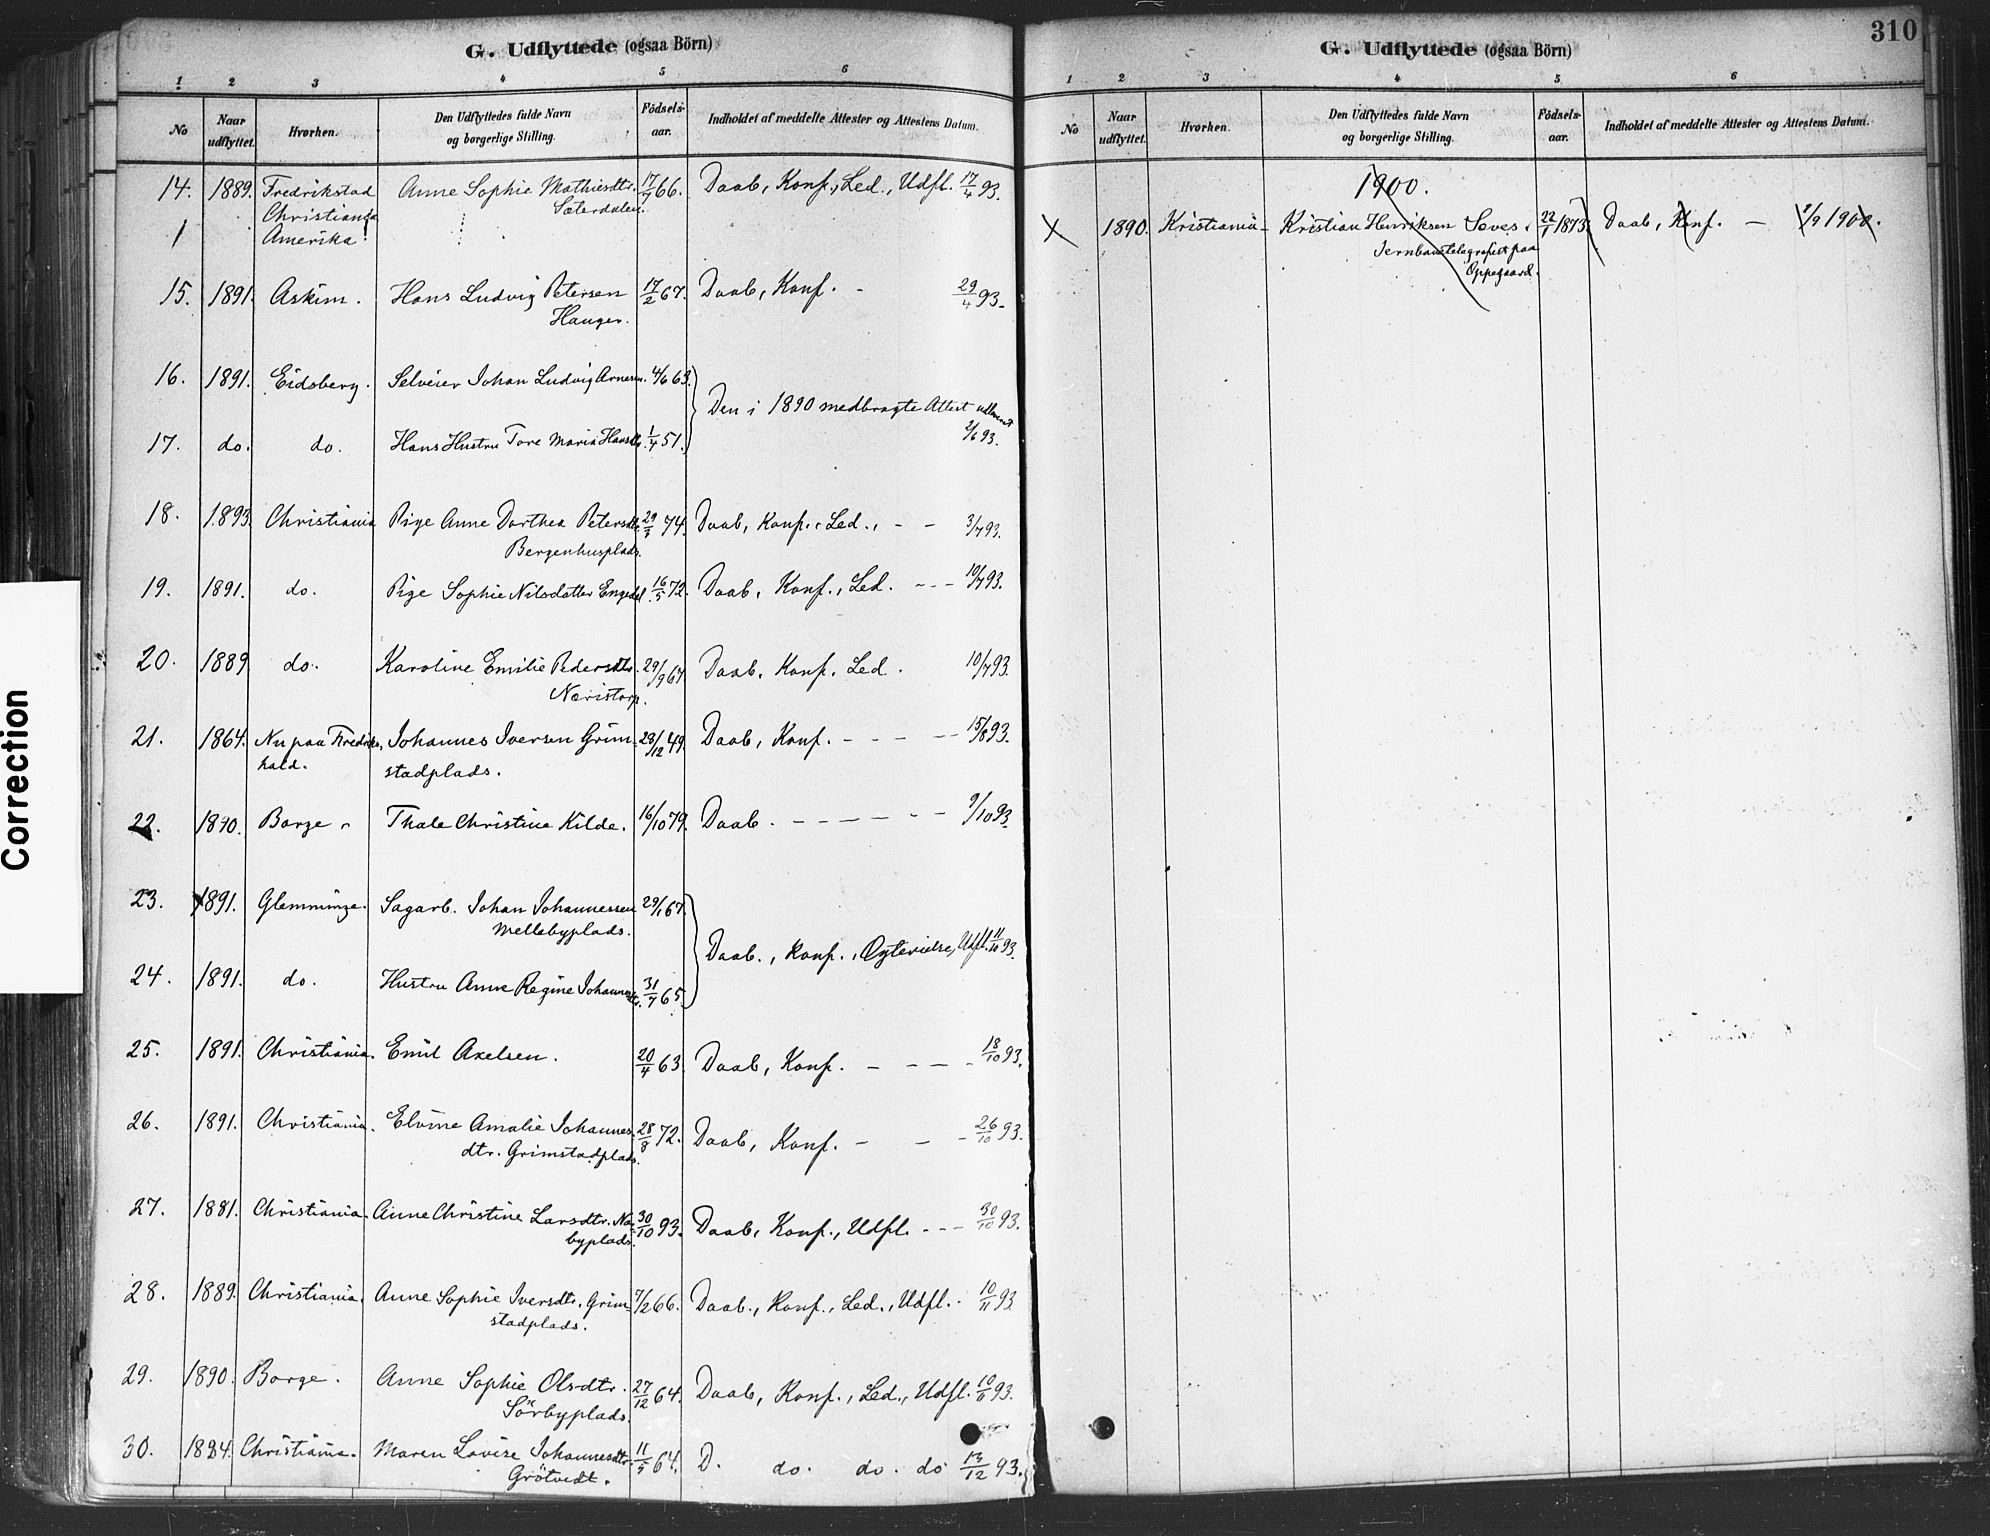 G. Udflyttede (ogsaa Börn)
1 2 3 4 5 6
No Naar udflyttet. Hvorhen. Den Udflyttedes fulde Navn og borgerlige Stilling. Födsels-aar. Indholdet af meddelte Attester og Attestens Datum.
14. 1889. Fredrikstad Anne Sophie Mathiesdtr. 17/7 66. Daab, Konf., Led., Udfl. 17/4 93.
Christiania Sæterdalen.
1 Amerika!
15. 1891. Askim. Hans Ludvig Petersen 17/2 67. Daab, Konf. - 29/4 93.
Hauger.
16. 1891. Eidsberg. Selveier Johan Ludvig Arnesen. 4/6 63.
Den i 1890 medbragte Attest udleveret
2/6 93.
17. do. do. Hans Hustru Tore Maria Hansdtr. 1/4 51.
18. 1893. Christiania Pige Anne Dorthea Petersdtr. 29/3 74. Daab, Konf., Led., - - 3/7 93.
Bergenhusplads.
19. 1891. do. Pige Sophie Nilsdatter Engedal 16/5 72. Daab, Konf., Led. - - - 10/7 93.
20. 1889 do. Karoline Emilie Pedersdtr. 29/9 67 Daab, Konf. Led. 10/7 93.
Næristorp.
21. 1864. Nu paa Fredriks- Johannes Iversen Grim- 28/12 49. Daab, Konf. - - - - 15/8 93.
hald. stadplads.
22. 1890. Borge Thale Christine Kilde. 16/10 79. Daab. - - - - - - - 9/10 93.
23. 1891. Glemminge. Sagarb. Johan Johannessen 29/1 67.
Mellebyplads.
Daab., Konf., Ægtevielse, Udfl. 11/10 93.
24. 1891. do. Hustru Anne Regine Johannesdtr. 31/7 65.
25. 1891. Christiania. Emil Axelsen. 20/4 63. Daab, Konf. - - - - 18/10 93.
26. 1891. Christiania. Elvine Amalie Johannes- 28/8 72. Daab, Konf. - - - 26/10 93.
dtr. Grimstadplads.
27. 1881. Christiania. Anne Christine Larsdtr. No- 30/10 93. Daab, Konf., Udfl. - - - 30/10 93.
byplads.
28. 1889. Christiania. Anne Sophie Iversdtr. Grim- 7/2 66. Daab., Konf., Led., Udfl. - 10/11 93
stadplads.
29. 1890. Borge. Anne Sophie Olsdtr. 27/12 64. Daab, Konf., Led., Udfl. 10/11 93.
Sörbyplads.
30. 1884. Christiania. Maren Lovise Johannesdtr. 11/5 64. D. do. do. do 13/12 93.
Grötvedt.
310
G. Udflyttede (ogsaa Börn)
1 2 3 4 5 6
No Naar udflyttet. Hvorhen. Den Udflyttedes fulde Navn og borgerlige Stilling. Födsels-aar. Indholdet af meddelte Attester og Attestens Datum.
1900.
X 1890. Kristiania - Kristian Henriksen 22/1 1873. Daab, Konf. - 1/9 1900.
Jernbanetelegrafist paa
Oppegaard.
Correction